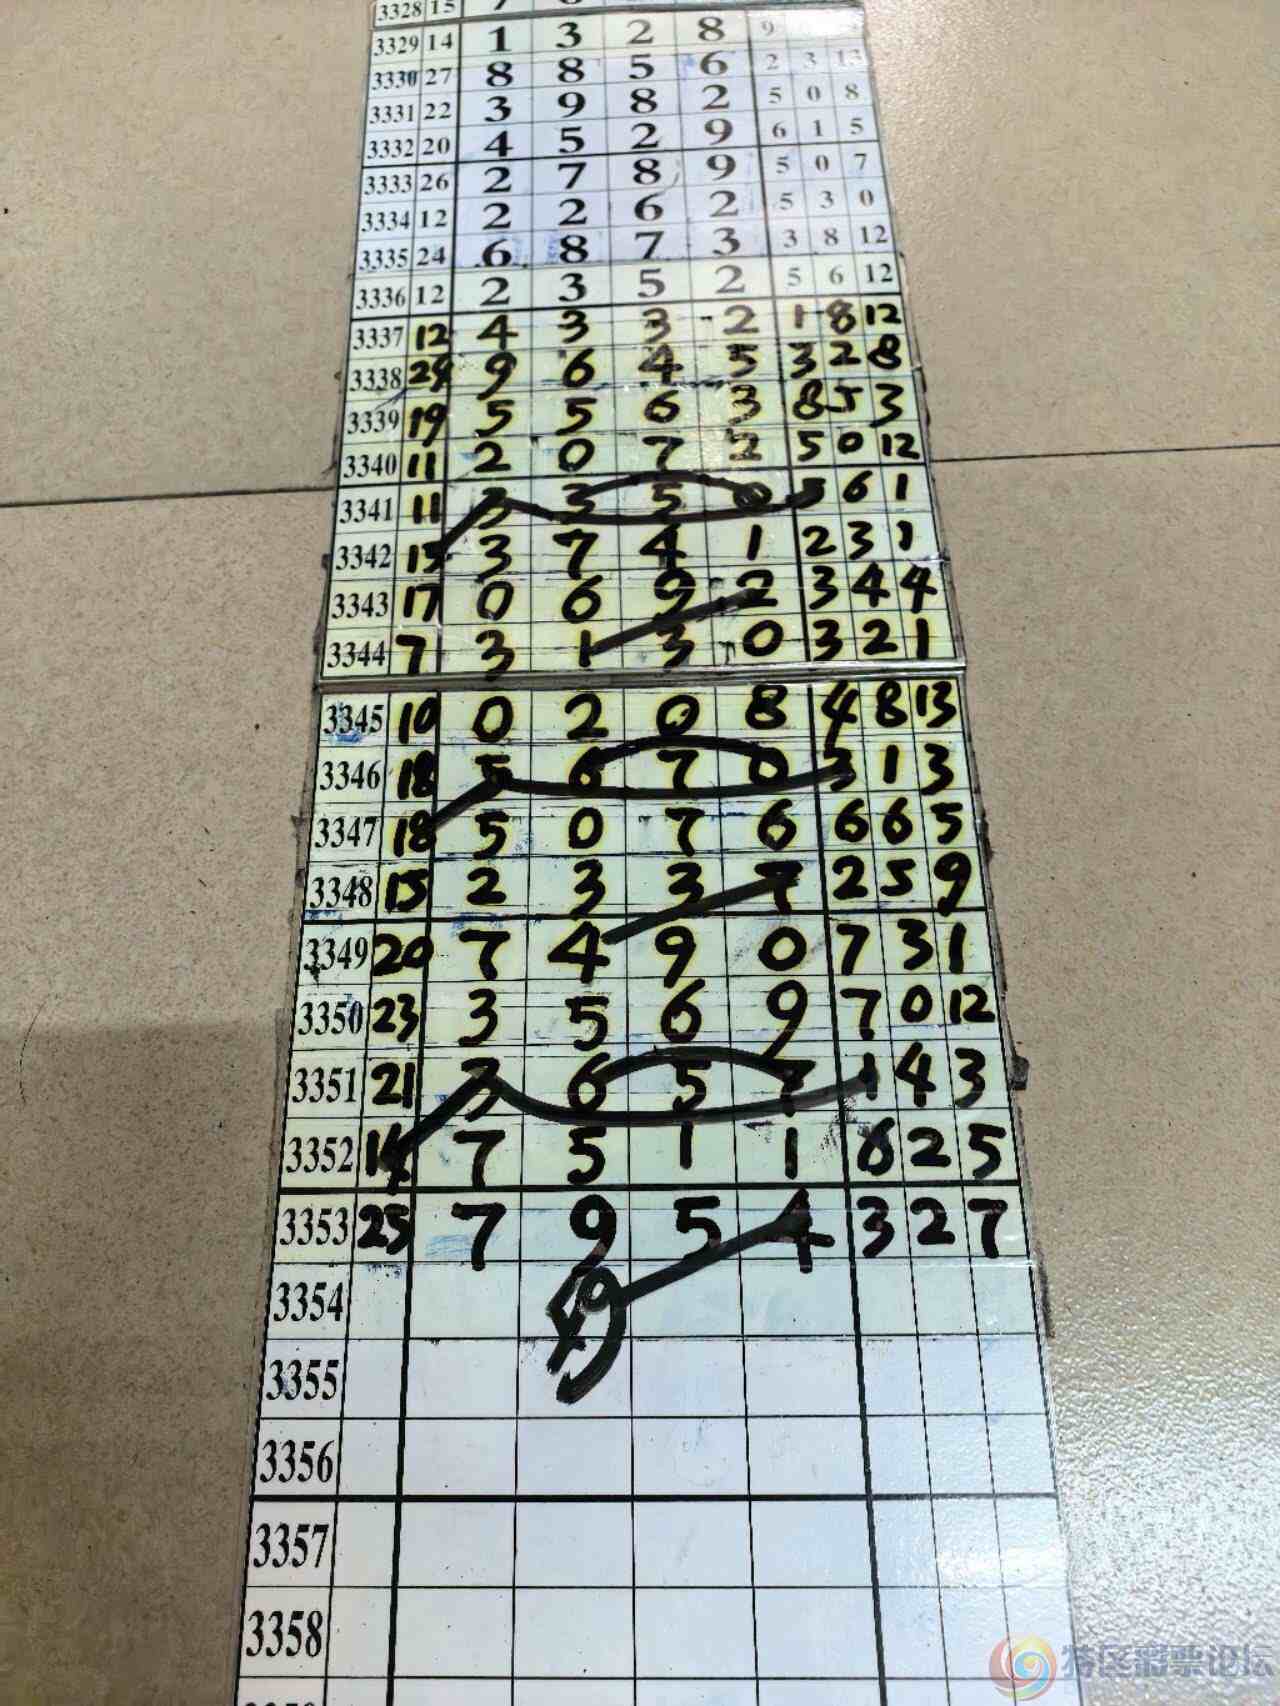 3328 15 7
3329 14 1 3 2 8 9
3330 27 8 8 5 6 2 3 13
3331 22 3 9 8 2 5 0 8
3332 20 4 5 2 9 6 1 5
3333 26 2 7 8 9 5 0 7
3334 12 2 2 6 2 5 3 0
3335 24 6 8 7 3 3 8 12
3336 12 2 3 5 2 5 6 12
3337 12 4 3 3 2 1 8 12
3338 24 9 6 4 5 3 2 8
3339 19 5 5 6 3 8 5 3
3340 11 2 0 7 2 5 0 12
3341 11 3 3 5 0 6 1
3342 15 3 7 4 1 2 3 1
3343 17 0 6 9 2 3 4 4
3344 7 3 1 3 0 3 2 1
3345 10 0 2 0 8 4 8 13
3346 18 5 6 7 0 3 1 3
3347 18 5 0 7 6 6 6 5
3348 15 2 3 3 7 2 5 9
3349 20 7 4 9 0 7 3 1
3350 23 3 5 6 9 7 0 12
3351 21 3 6 5 7 1 4 3
3352 14 7 5 1 1 8 2 5
3353 25 7 9 5 4 3 2 7
3354
3355
3356
3357
3358
特区彩票论坛